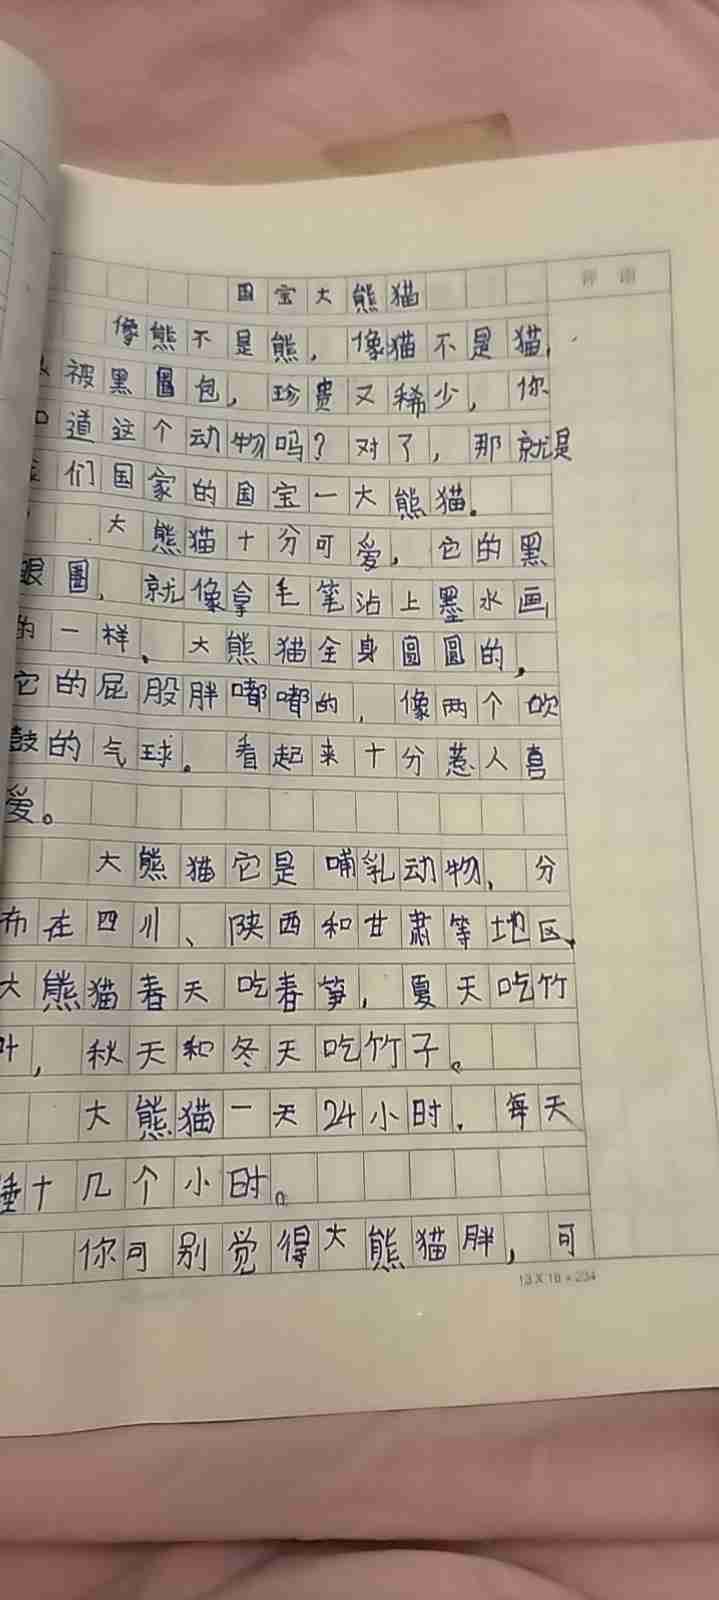 国宝大熊猫
评语
像熊不是熊，像猫不是猫，
被黑圈包，珍贵又稀少，你
道这个动物吗？对了，那就是
们国家的国宝一大熊猫。
大熊猫十分可爱，它的黑
眼圈，就像拿毛笔沾上墨水画
的一样。大熊猫全身圆圆的，
它的屁股胖嘟嘟的，像两个吹
鼓的气球。看起来十分惹人喜
爱。
大熊猫它是哺乳动物，分
布在四川、陕西和甘肃等地区，
大熊猫春天吃春笋，夏天吃竹
叶，秋天和冬天吃竹子。
大熊猫一天24小时，每天
睡十几个小时。
你可别觉得大熊猫胖，可
13×18=234